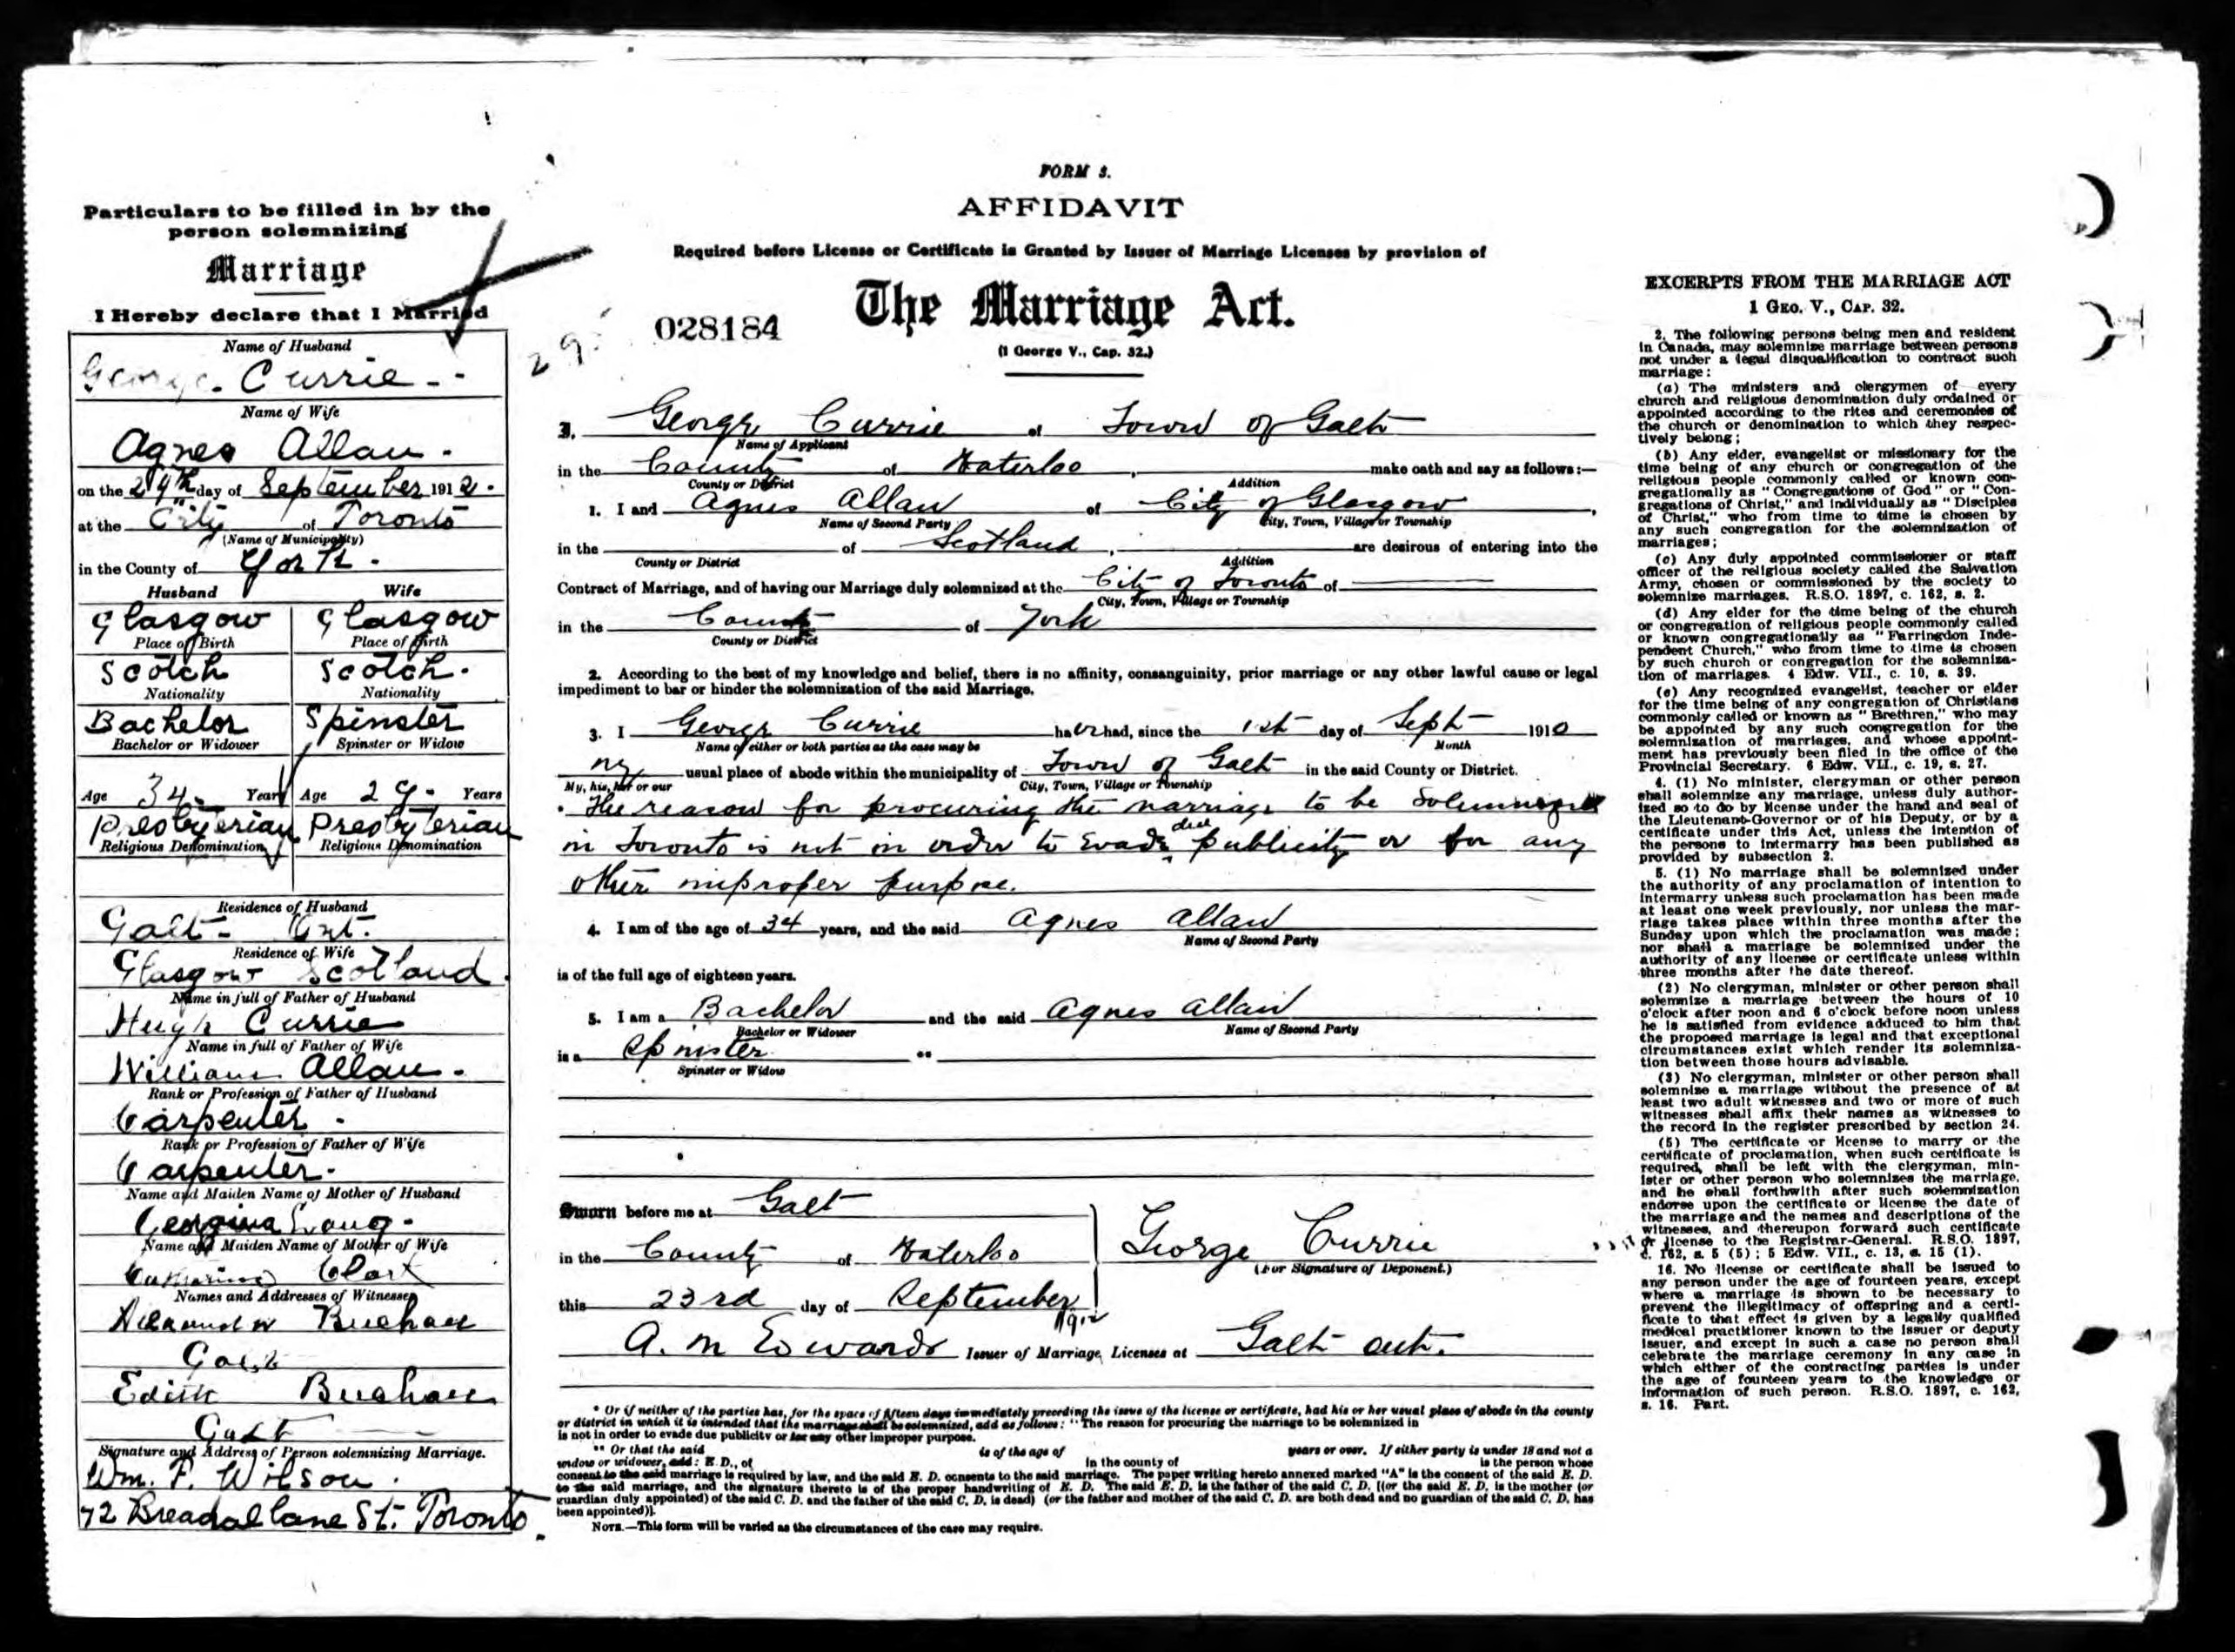 Particulars to be filled in by the
person solemnizing
Marriage
I Hereby declare that I Married
Name of Husband
George Currie
Name of Wife
Agnes Allan.
on the day of September 1912.
at the City of Toronto
(Name of Municipality)
in the County of York.
Husband Wife
Glasgow Glasgow
Place of Birth Place of Birth
Scotch Scotch.
Nationality Nationality
Bachelor Spinster
Bachelor or Widower Spinster or Widow
Age 34. Years Age 29. Years
Presbyterian Presbyterian
Religious Denomination Religious Denomination
Residence of Husband
Galt - Ont.
Residence of Wife
Glasgow Scotland.
Name in full of Father of Husband
Hugh Currie
Name in full of Father of Wife
William Allan.
Rank or Profession of Father of Husband
Carpenter.
Rank or Profession of Father of Wife
Carpenter.
Name and Maiden Name of Mother of Husband
Georgina
Name and Maiden Name of Mother of Wife
Catharine Clark
Names and Addresses of Witnesses
Alexander Buchan
Galt
Edith Buchan
Galt
Signature and Address of Person solemnizing Marriage.
Wm. F. Wilson.
72 Breadalbane St. Toronto.
FORM 3.
AFFIDAVIT
Required before License or Certificate is Granted by Issuer of Marriage Licenses by provision of
The Marriage Act.
028184
(1 George V., Cap. 32.)
George Currie of Town of Galt
Name of Applicant
in the County of Waterloo, make oath and say as follows:—
County or District Addition
1. I and Agnes Allan of City of Glasgow,
Name of Second Party City, Town, Village or Township
in the of Scotland, are desirous of entering into the
County or District Addition
Contract of Marriage, and of having our Marriage duly solemnized at the City of Toronto of
City, Town, Village or Township
in the County of York
County or District
2. According to the best of my knowledge and belief, there is no affinity, consanguinity, prior marriage or any other lawful cause or legal
impediment to bar or hinder the solemnization of the said Marriage.
3. I George Currie have had, since the 1st day of Sept 1910
Name of either or both parties as the case may be Month
my usual place of abode within the municipality of Town of Galt in the said County or District.
My, his, her or our City, Town, Village or Township
* The reason for procuring the marriage to be Solemnized
in Toronto is not in order to Evade due publicity or for any
other improper purpose.
4. I am of the age of 34 years, and the said Agnes Allan
Name of Second Party
is of the full age of eighteen years.
5. I am a Bachelor and the said Agnes Allan
Bachelor or Widower Name of Second Party
is a Spinster **
Spinster or Widow
Sworn before me at Galt
in the County of Waterloo
George Currie
(For Signature of Deponent.)
this 23rd day of September 1912
A. M Edwards Issuer of Marriage Licenses at Galt Ont.
* Or if neither of the parties has, for the space of fifteen days immediately preceding the issue of the license or certificate, had his or her usual place of abode in the county
or district in which it is intended that the marriage shall be solemnized, add as follows: "The reason for procuring the marriage to be solemnized in
is not in order to evade due publicity or for any other improper purpose.
** Or that the said is of the age of years or over. If either party is under 18 and not a
widow or widower, add: E. D., of in the county of is the person whose
consent to the said marriage is required by law, and the said E. D. consents to the said marriage. The paper writing hereto annexed marked "A" is the consent of the said E. D.
to the said marriage, and the signature thereto is of the proper handwriting of E. D. The said E. D. is the father of the said C. D. [(or the said E. D. is the mother (or
guardian duly appointed) of the said C. D. and the father of the said C. D. is dead) (or the father and mother of the said C. D. are both dead and no guardian of the said C. D. has
been appointed)].
NOTE.—This form will be varied as the circumstances of the case may require.
EXCERPTS FROM THE MARRIAGE ACT
1 GEO. V., CAP. 32.
2. The following persons being men and resident
in Canada, may solemnize marriage between persons
not under a legal disqualification to contract such
marriage:
(a) The ministers and clergymen of every
church and religious denomination duly ordained or
appointed according to the rites and ceremonies of
the church or denomination to which they respec-
tively belong;
(b) Any elder, evangelist or missionary for the
time being of any church or congregation of the
religious people commonly called or known con-
gregationally as "Congregations of God" or "Con-
gregations of Christ," and individually as "Disciples
of Christ," who from time to time is chosen by
any such congregation for the solemnization of
marriages;
(c) Any duly appointed commissioner or staff
officer of the religious society called the Salvation
Army, chosen or commissioned by the society to
solemnize marriages. R.S.O. 1897, c. 162, s. 2.
(d) Any elder for the time being of the church
or congregation of religious people commonly called
or known congregationally as "Farringdon Inde-
pendent Church," who from time to time is chosen
by such church or congregation for the solemniza-
tion of marriages. 4 Edw. VII., c. 10, s. 39.
(e) Any recognized evangelist, teacher or elder
for the time being of any congregation of Christians
commonly called or known as "Brethren," who may
be appointed by any such congregation for the
solemnization of marriages, and whose appoint-
ment has previously been filed in the office of the
Provincial Secretary. 6 Edw. VII., c. 19, s. 27.
4. (1) No minister, clergyman or other person
shall solemnize any marriage, unless duly author-
ized so to do by license under the hand and seal of
the Lieutenant-Governor or of his Deputy, or by a
certificate under this Act, unless the intention of
the persons to intermarry has been published as
provided by subsection 2.
5. (1) No marriage shall be solemnized under
the authority of any proclamation of intention to
intermarry unless such proclamation has been made
at least one week previously, nor unless the mar-
riage takes place within three months after the
Sunday upon which the proclamation was made;
nor shall a marriage be solemnized under the
authority of any license or certificate unless within
three months after the date thereof.
(2) No clergyman, minister or other person shall
solemnize a marriage between the hours of 10
o'clock after noon and 6 o'clock before noon unless
he is satisfied from evidence adduced to him that
the proposed marriage is legal and that exceptional
circumstances exist which render its solemniza-
tion between those hours advisable.
(3) No clergyman, minister or other person shall
solemnize a marriage without the presence of at
least two adult witnesses and two or more of such
witnesses shall affix their names as witnesses to
the record in the register prescribed by section 24.
(5) The certificate or license to marry or the
certificate of proclamation, when such certificate is
required, shall be left with the clergyman, min-
ister or other person who solemnizes the marriage,
and he shall forthwith after such solemnization
endorse upon the certificate or license the date of
the marriage and the names and descriptions of the
witnesses, and thereupon forward such certificate
or license to the Registrar-General. R.S.O. 1897,
c. 162, s. 5 (5); 5 Edw. VII., c. 13, s. 15 (1).
16. No license or certificate shall be issued to
any person under the age of fourteen years, except
where a marriage is shown to be necessary to
prevent the illegitimacy of offspring and a certi-
ficate to that effect is given by a legally qualified
medical practitioner known to the issuer or deputy
issuer, and except in such a case no person shall
celebrate the marriage ceremony in any case in
which either of the contracting parties is under
the age of fourteen years to the knowledge or
information of such person. R.S.O. 1897, c. 162,
s. 16. Part.